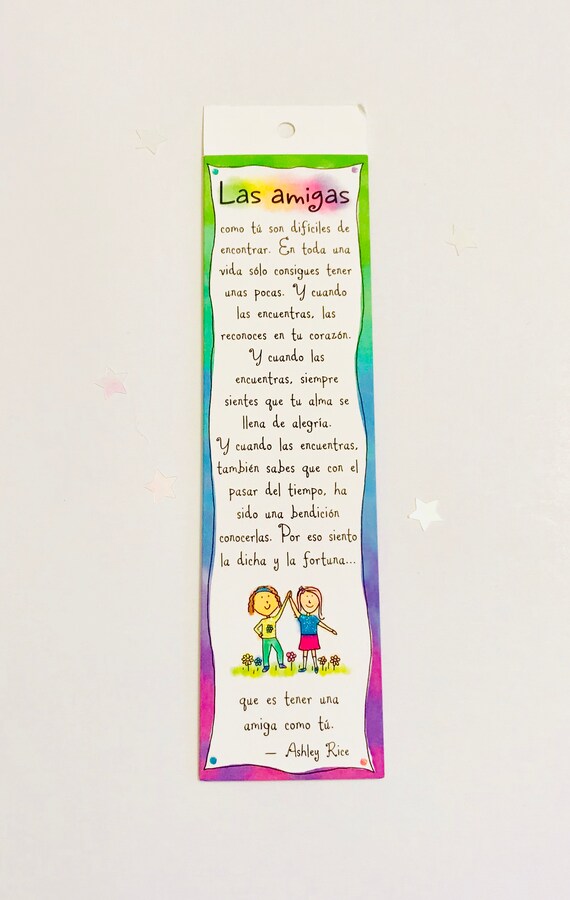 Las amigas
como tú son difíciles de
encontrar. En toda una
vida sólo consigues tener
unas pocas. Y cuando
las encuentras, las
reconoces en tu corazón.
Y cuando las
encuentras, siempre
sientes que tu alma se
llena de alegría.
Y cuando las encuentras,
también sabes que con el
pasar del tiempo, ha
sido una bendición
conocerlas. Por eso siento
la dicha y la fortuna...
que es tener una
amiga como tú.
— Ashley Rice